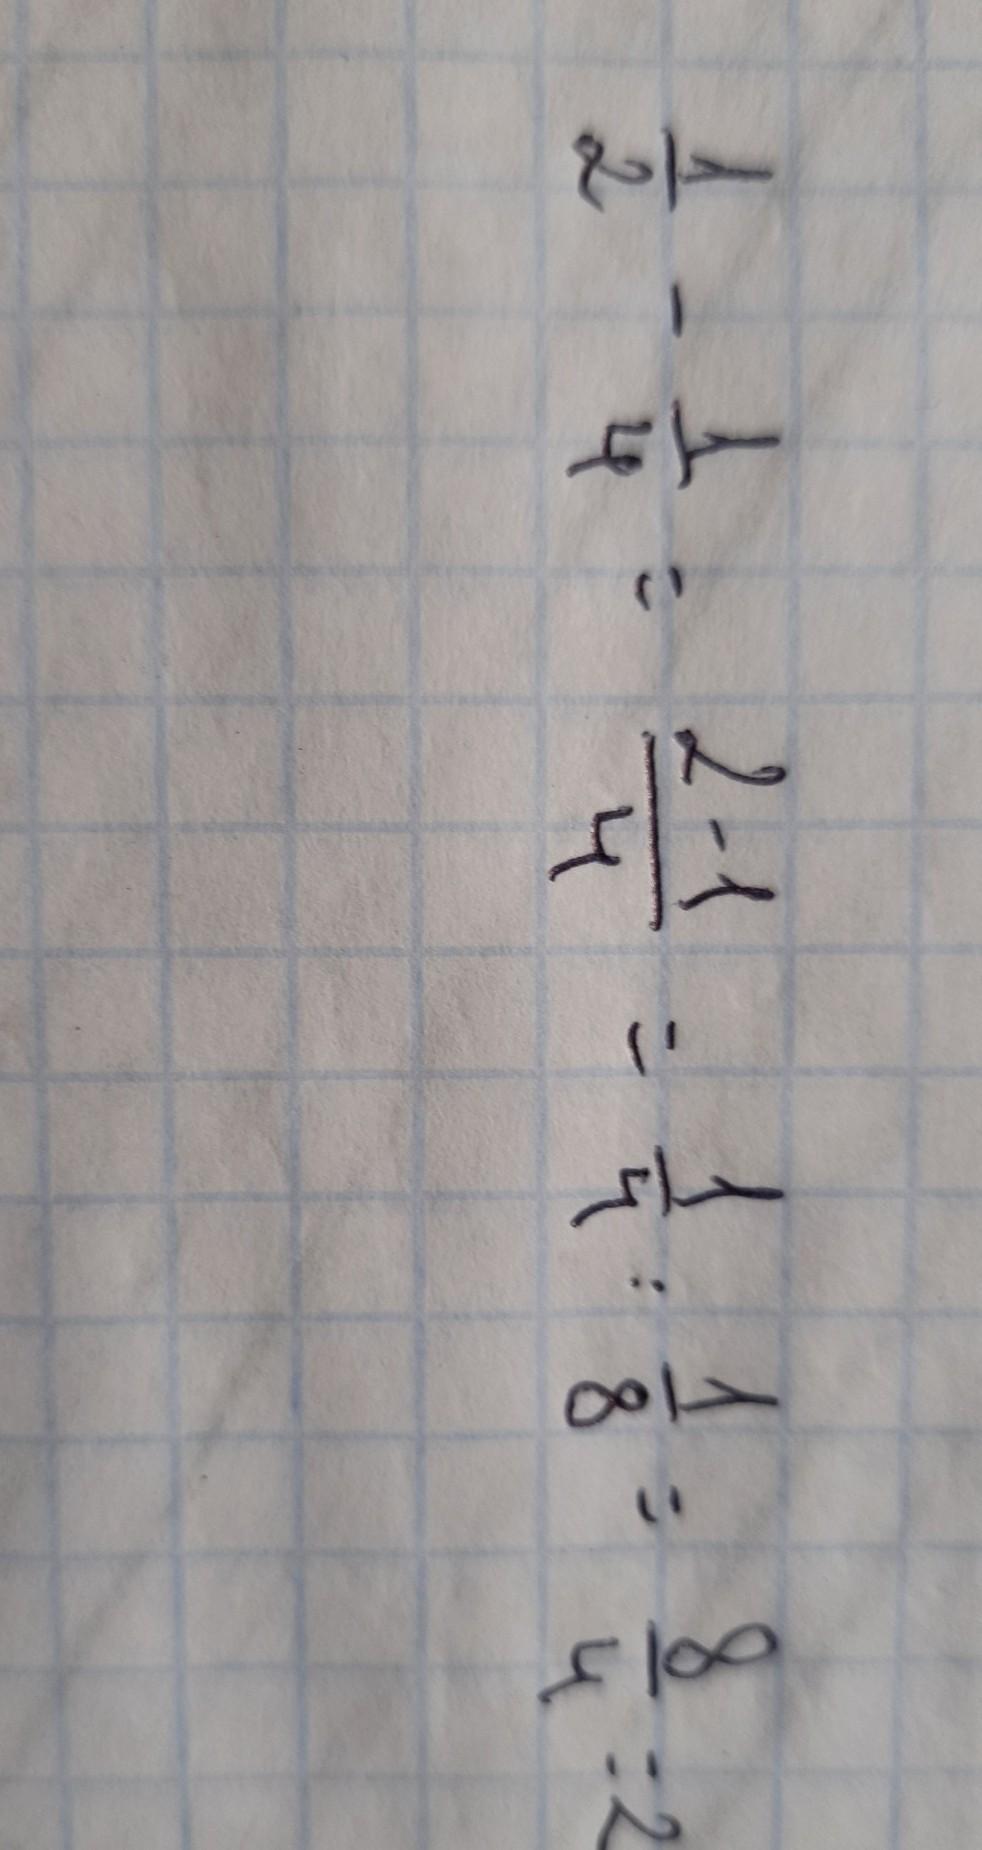 1/2 - 1/4 = (2-1)/4 = 1/4 : 1/8 = 8/4 = 2